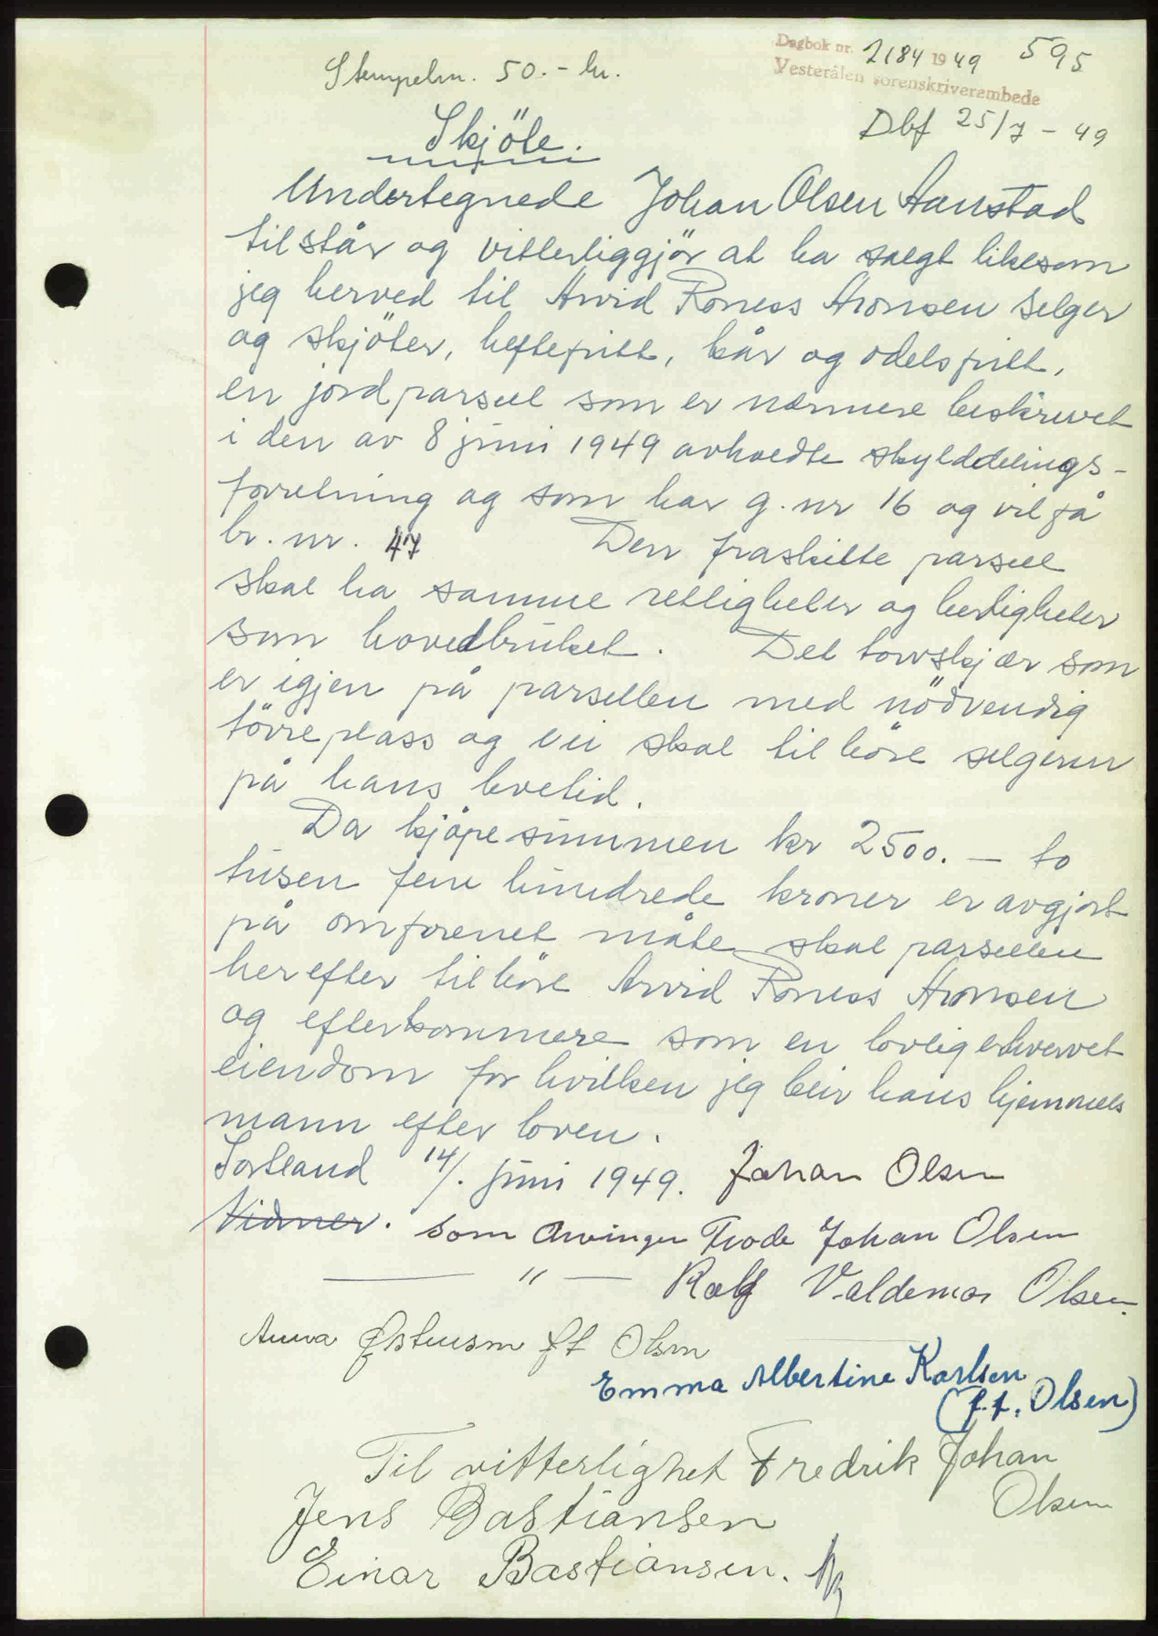 Dagbok nr. 2184 1949 595
Vesterålen sorenskriverembede
Stempelm. 50.- kr.
Dbf 25/7 - 49
Skjöte.
Undertegnede Johan Olsen Aanstad
tilstår og vitterliggjör at ha sælgt likesom
jeg herved til Arvid Roness Aronsen selger
og skjöter, heftefritt, kår og odelsfritt,
en jordparsell som er nærmere beskrevet
i den av 8 juni 1949 avholdte skylddelings-
forretning og som har g. nr 16 og vil få
br. nr. 47 Den fraskilte parsell
skal ha samme rettigheter og herligheter
som hovedbruket. Det torvskjær som
er igjen på parsellen med nödvendig
törreplass og vei skal tilhöre selgeren
på hans levetid.
Da kjöpesummen kr 2500.- to
tusen fem hundrede kroner er avgjort
på omforenet måte skal parsellen
herefter tilhöre Arvid Roness Aronsen
og efterkommere som en lovlig erhvervet
eiendom for hvilken jeg blir hans hjemmels
mann efter loven.
Sortland 14/. juni 1949. Johan Olsen
Vidner. som Arvinger Frode Johan Olsen
" Ralf Valdemar Olsen.
Anna Østensen ft Olsen
Emma Albertine Karlsen
(f.f. Olsen)
Til vitterlighet Fredrik Johan
Olsen
Jens Bastiansen
Einar Bastiansen.